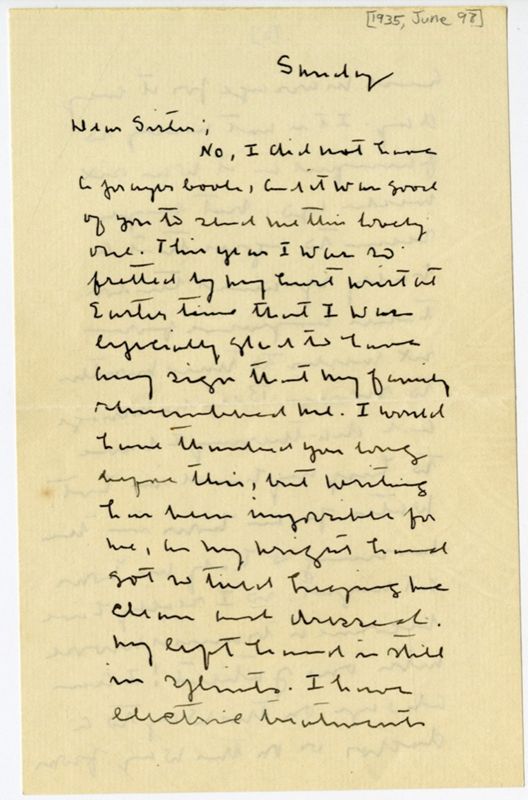 [1935, June 9?]
Sunday
Dear Sister;
No, I did not have
a prayer book, and it was good
of you to send me this lovely
one. This year I was so
fretted by my hurt wrist at
Easter time that I was
especially glad to have
any sign that my family
remembered me. I would
have thanked you long
before this, but writing
has been impossible for
me, as my wright hand
got so tired keeping me
clean and dressed.
My left hand is still
in splints. I have
electric treatments